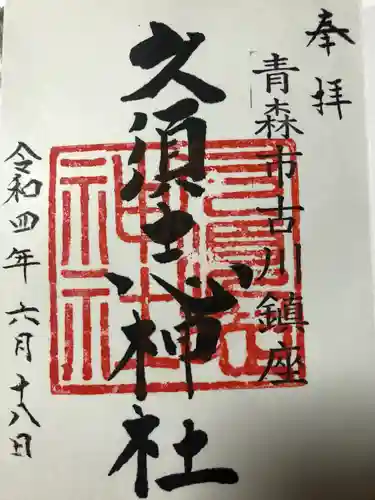 奉拝
青森市古川鎮座
久須志神社
令和四年六月十八日